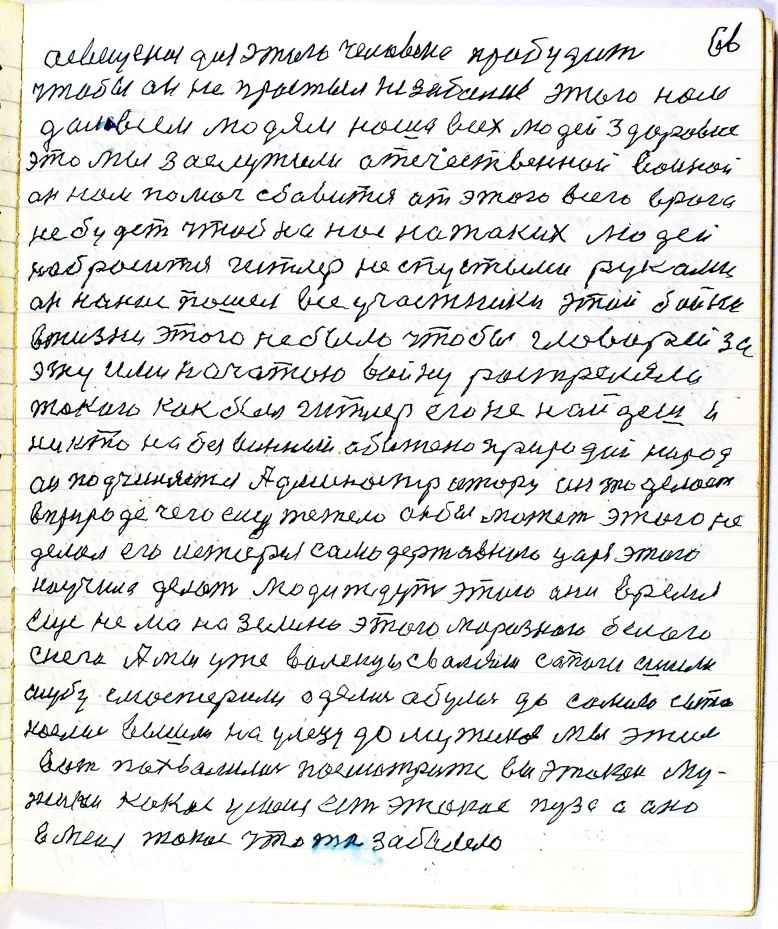 освещенья для этого человека пробудит
чтобы он не простыл не заболел этого нам
дал всем людям наша всех людей здоровие
это мы заслужили отечественной войной
он нам помог сбавится от этого всего врага
не будет чтоб на нас на таких людей
набросится гитлер не с пустыми руками
он на нас пошел все участники этой бойне
в жизни этого не было чтобы главарей за
эту ими начатою войну растреляли
такого как был гитлер его не найдеш и
никто на безвинный обижено природай народ
он подчиняется Администратору он это делает
в природе чего ему тежело он бы может этого не
делал его история самодержавного царя этого
научила делат люди ждут этого они время
еще не ма на Земли этого морозного белого
снега А мы уже валенцы сваляли сапоги сшили
шубу смастерили одели обули до самого
после вышли на улецу до мужиков мы этим
вот похвалили посмотрите вы этакаи му-
жики какое у меня ест этакое пузо а оно
в меня такое что та заболело